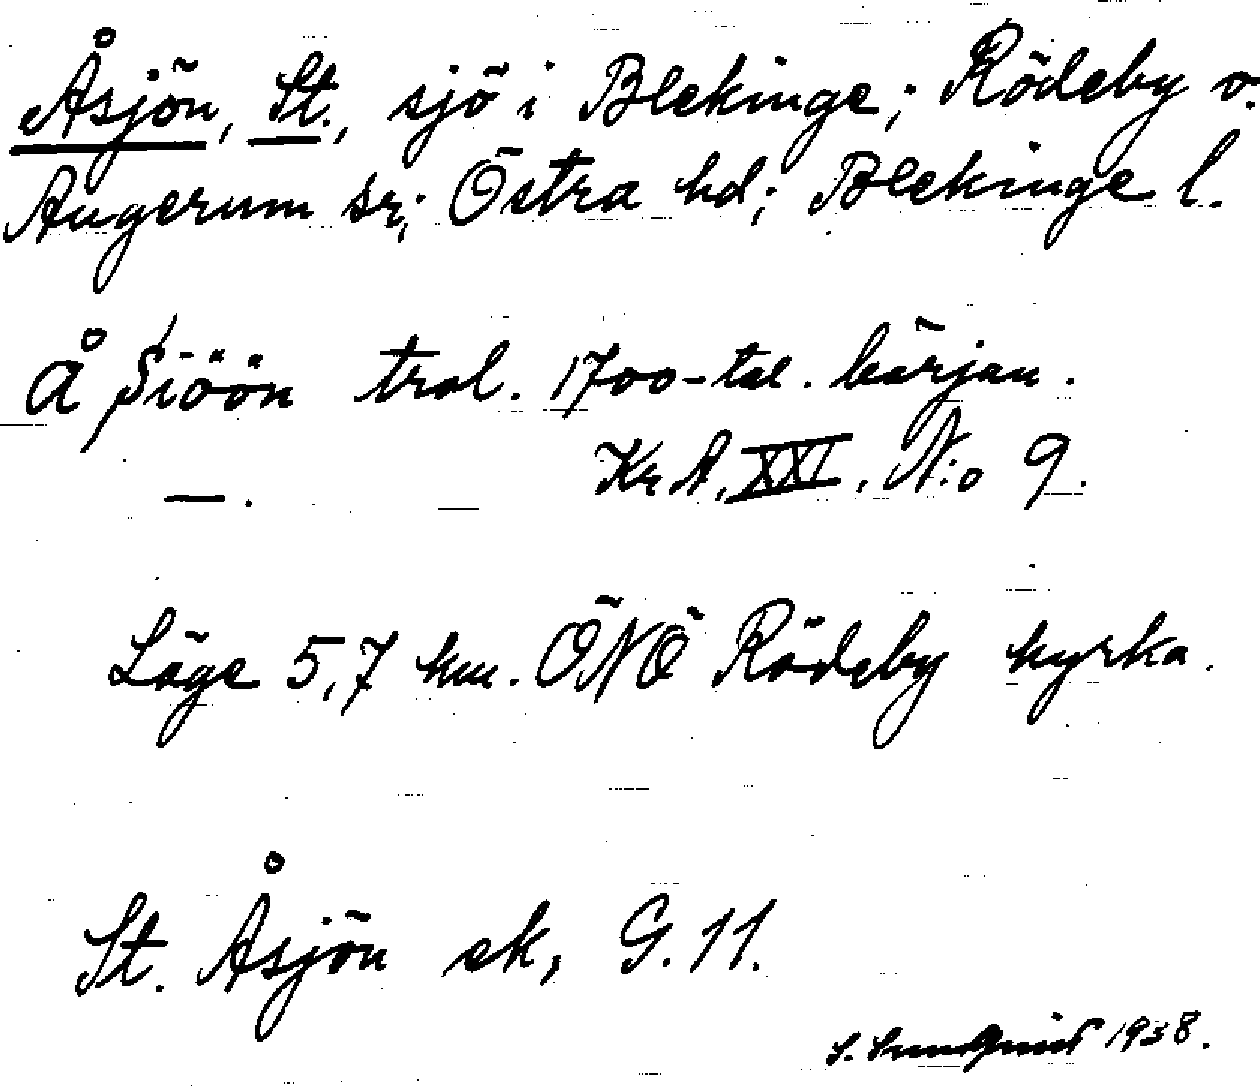 Åsjön, St., sjö i Blekinge; Rödeby o.
Augerum sr; Östra hd; Blekinge l.
Å Siöön trol. 1700-tal. början.
Kr A, XXI, N:o 9.
—. —
Läge 5,7 km. ÖNÖ Rödeby kyrka.
St. Åsjön ek, G. 11.
S. Sundquist 1938.